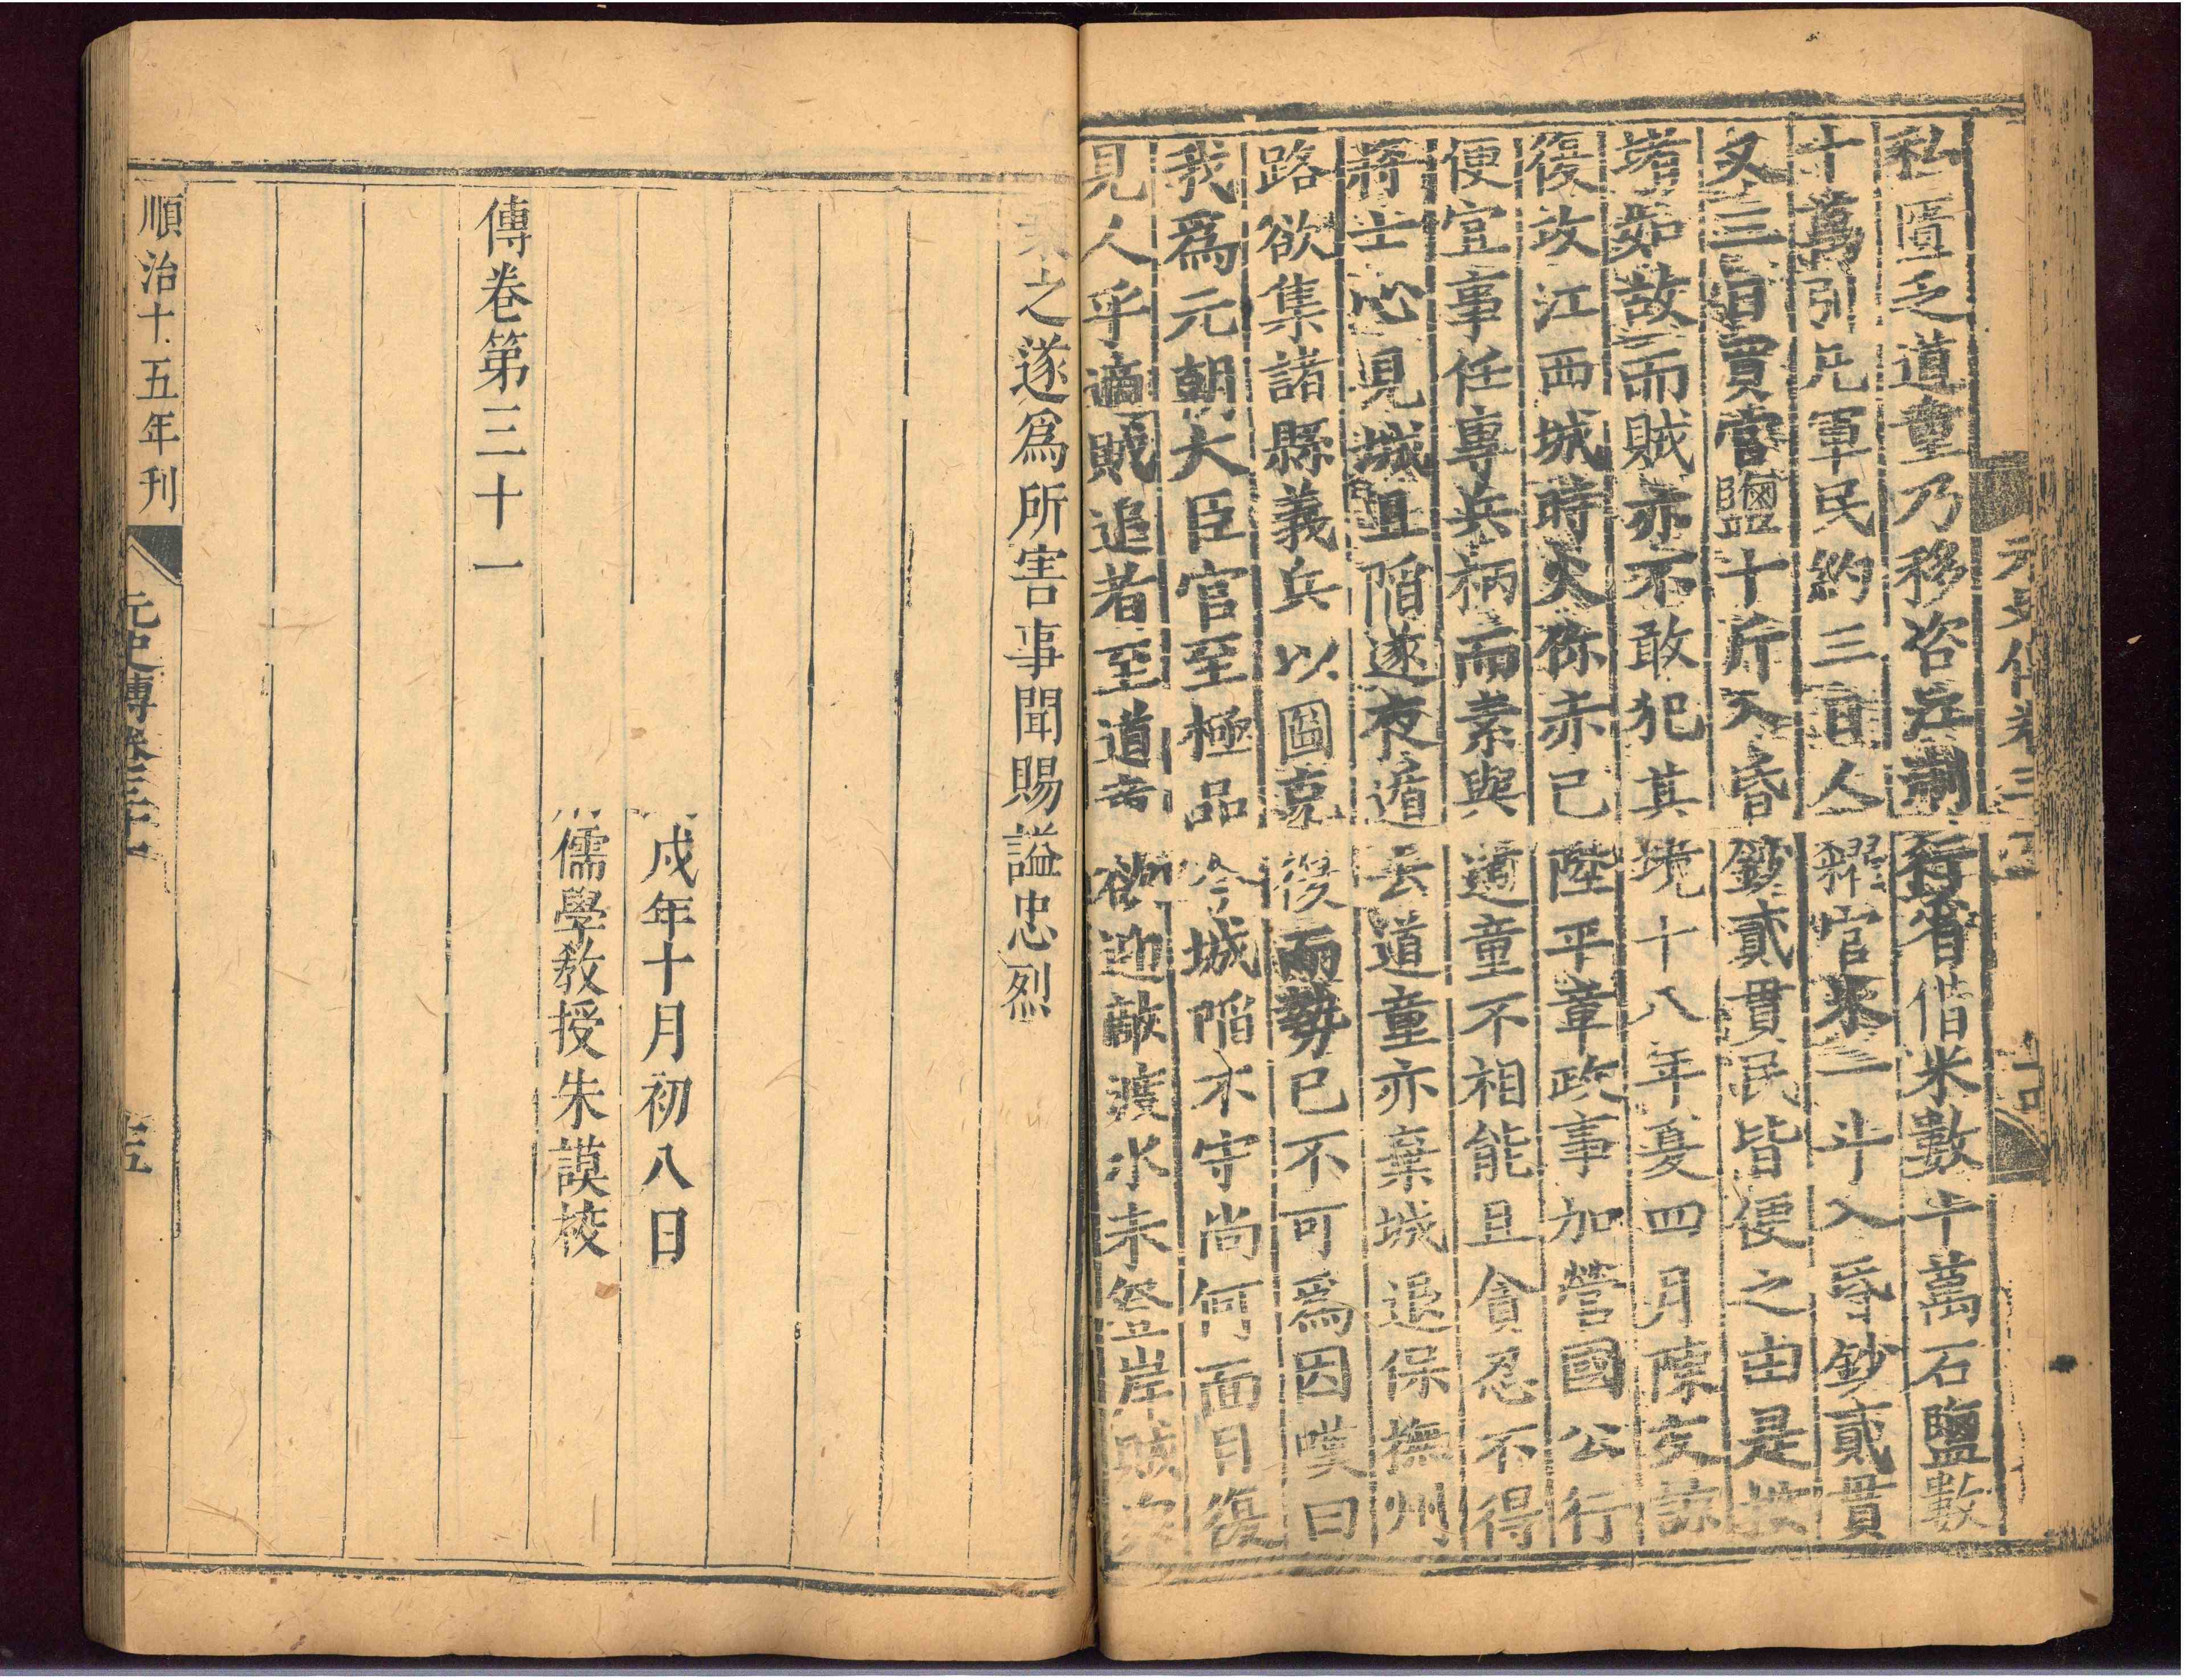 元史傳卷三
私匱乏道童乃移咨江浙行省借米數十萬石鹽數
十萬引凡軍民約三日人糴官米一斗入昏鈔貳貫
又三日買官鹽十斤入昏鈔貳貫民皆便之由是按
堵如故而賊亦不敢犯其境十八年夏四月陳友諒
復攻江西城時火你赤已陞平章政事加營國公行
便宜事任專兵柄而素與道童不相能且貪忍不得
將士心見城且陷遂夜遁去道童亦棄城退保撫州
路欲集諸縣義兵以圖克復而勢已不可為因嘆曰
我為元朝大臣官至極品今城陷不守尚何面目復
見人乎適賊追者至道童欲迎敵渡水未登岸賊衆
乘之遂為所害事聞賜謚忠烈
戍年十月初八日
儒學教授朱謨校
傳卷第三十一
順治十五年刊
元史傳卷三十一